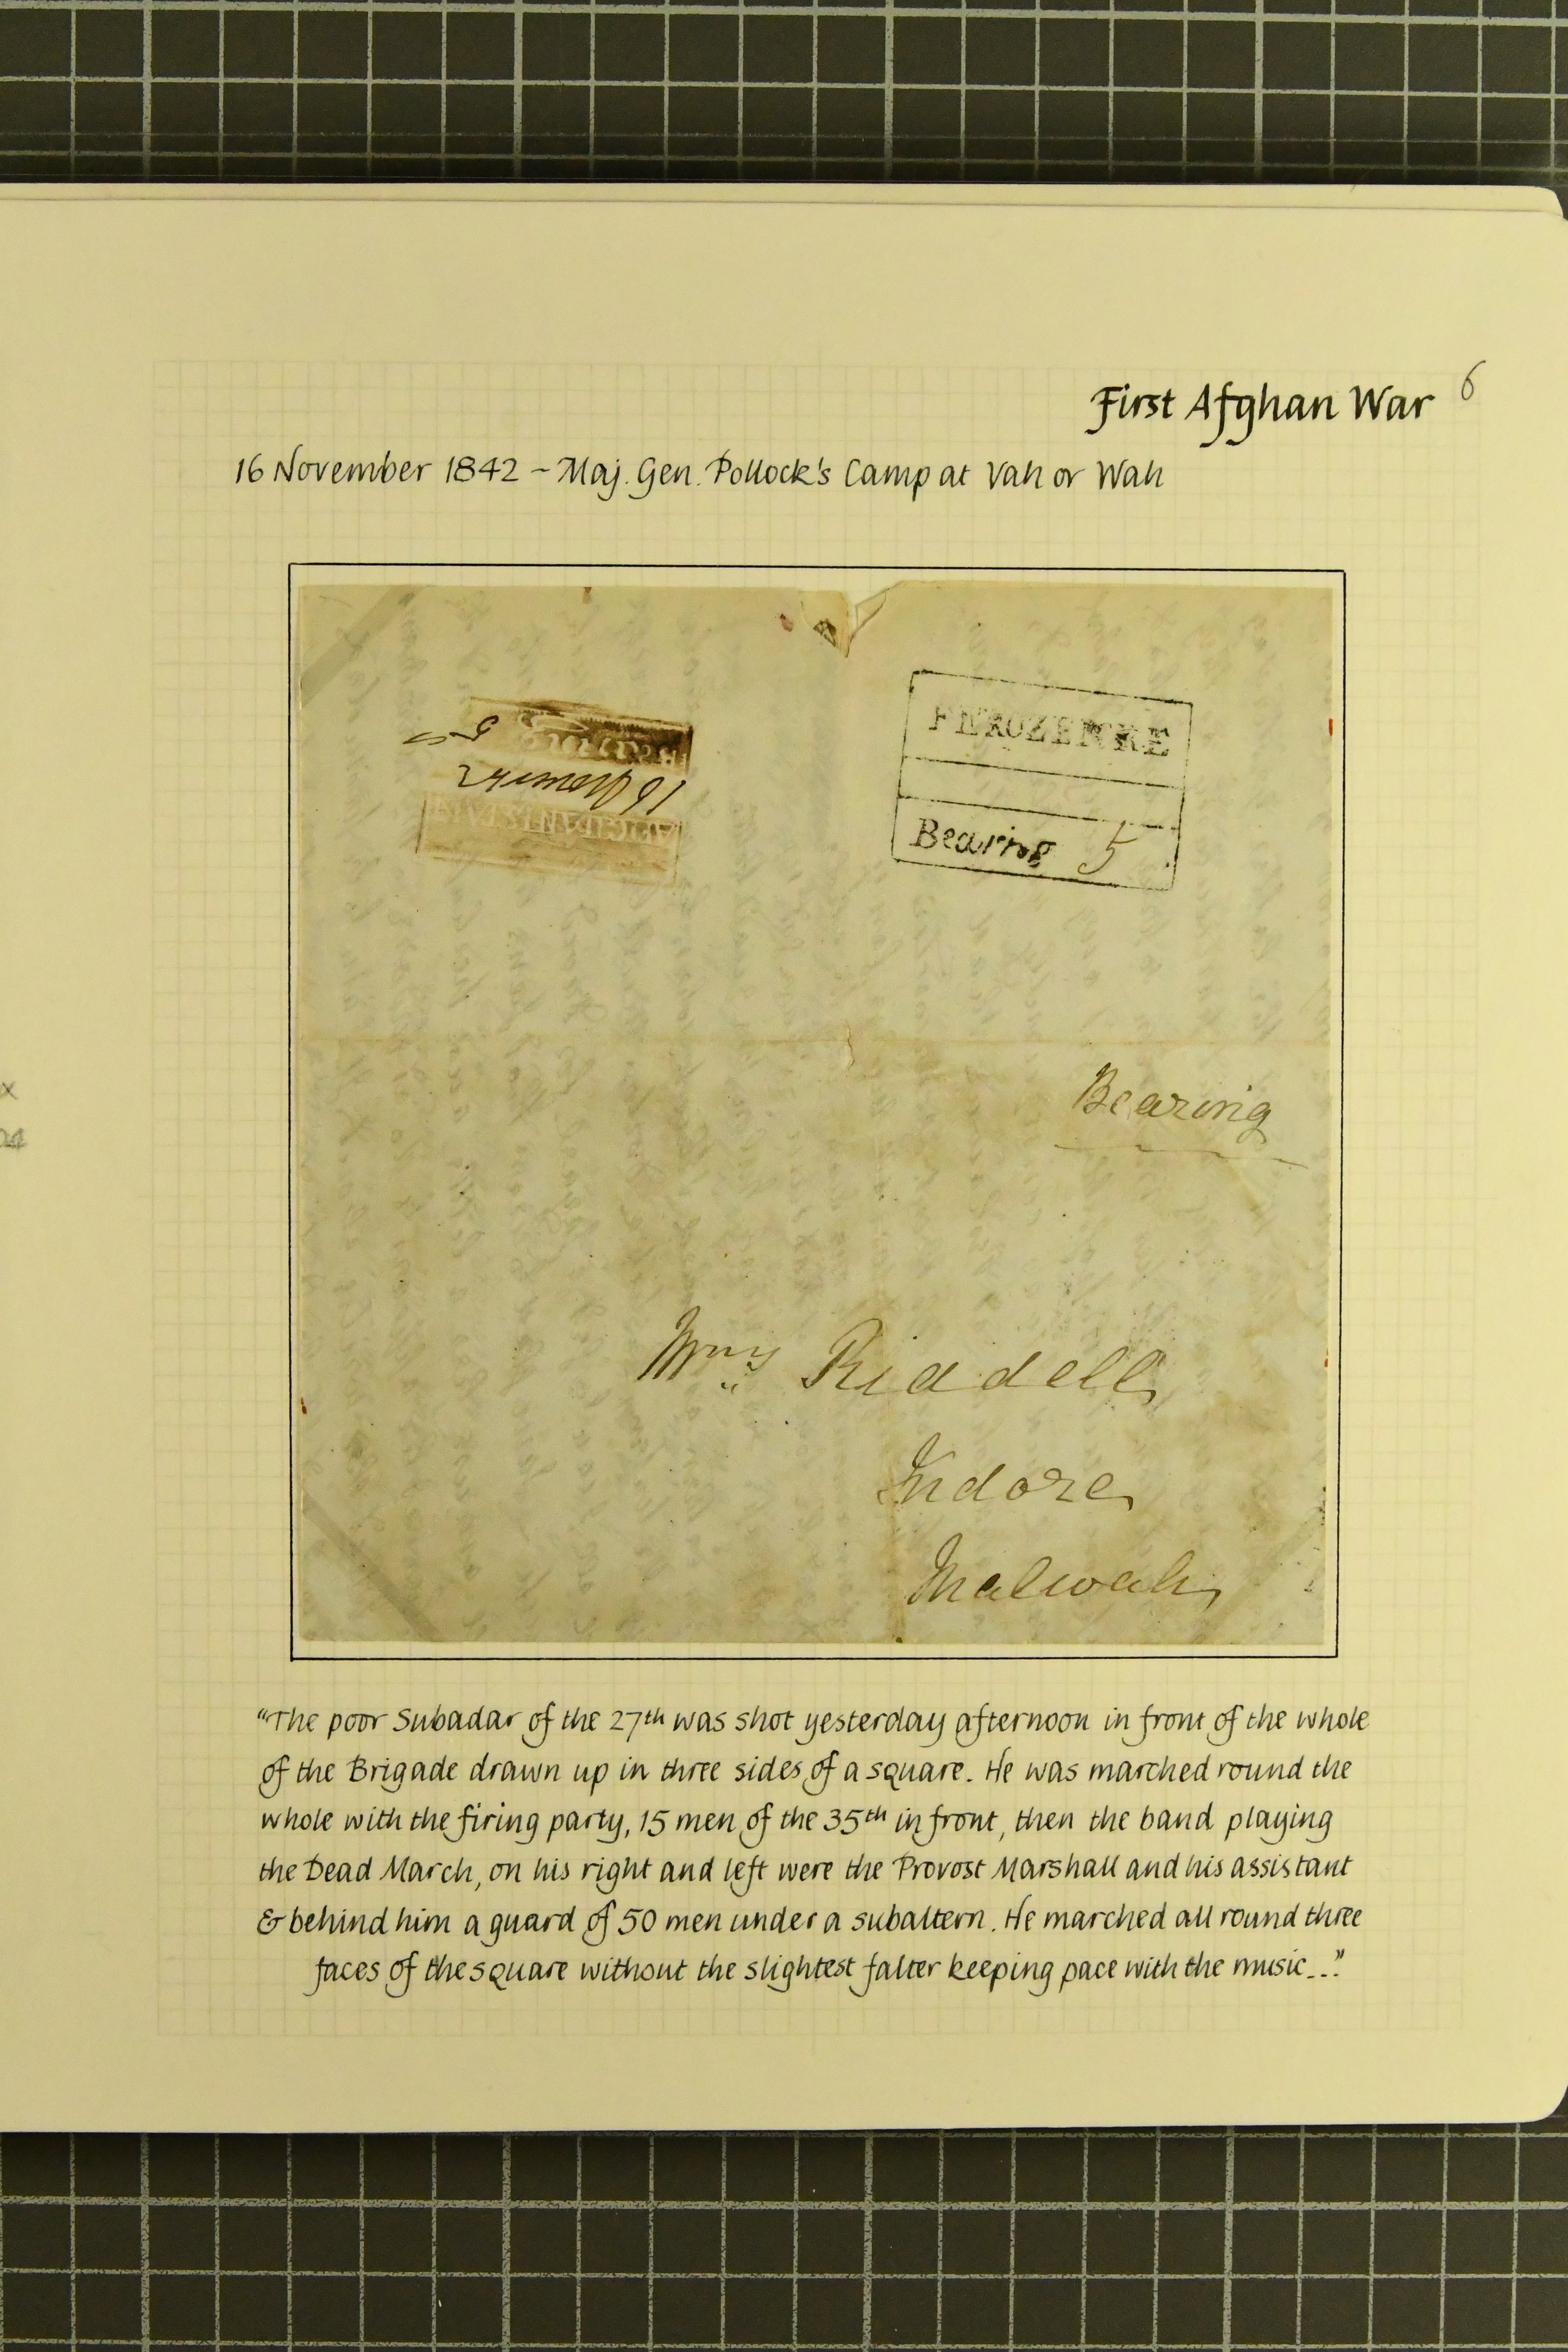 6
First Afghan War
16 November 1842 ~ Maj. Gen. Pollock's Camp at Vah or Wah
FEROZEPORE
Bearing 5
5
16 Novr 1842
Bearing
Mrs Riddell
Indore
Malwah
"The poor Subadar of the 27th was shot yesterday afternoon in front of the whole
of the Brigade drawn up in three sides of a square. He was marched round the
whole with the firing party, 15 men of the 35th in front, then the band playing
the Dead March, on his right and left were the Provost Marshall and his assistant
& behind him a guard of 50 men under a subaltern. He marched all round three
faces of the square without the slightest falter keeping pace with the music..."